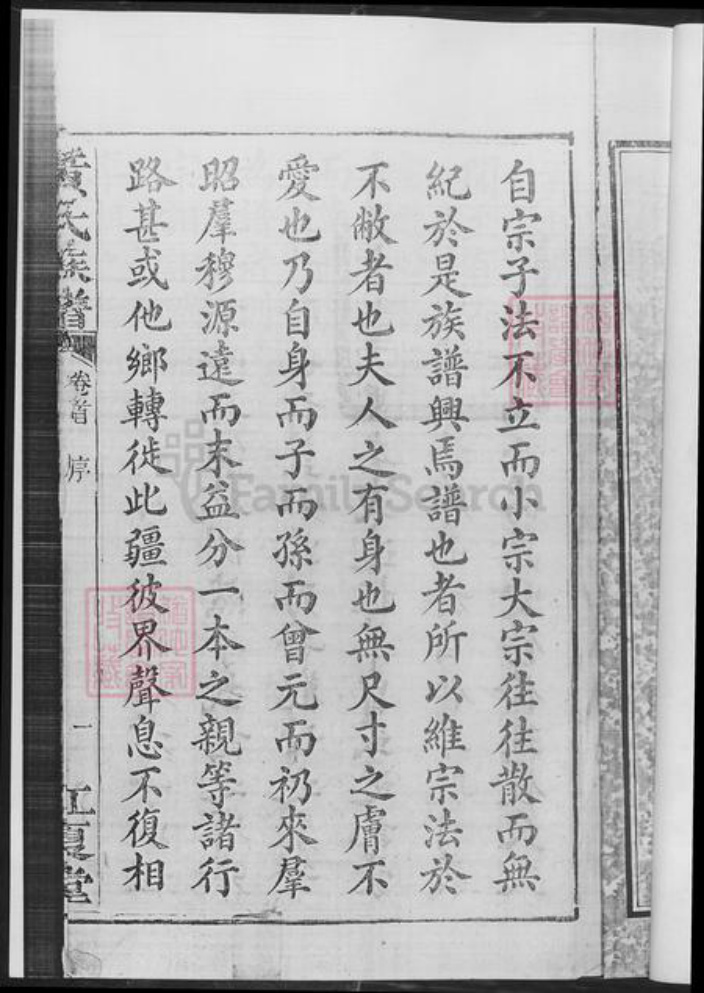 自宗子法不立而小宗大宗往往散而無
紀於是族譜興焉譜也者所以維宗法於
不敝者也夫人之有身也無尺寸之膚不
愛也乃自身而子而孫而曾元而礽來羣
昭羣穆源遠而末益分一本之親等諸行
路甚或他鄉轉徙此疆彼界聲息不復相
黃氏族譜
卷首
序
一
江夏堂
FamilySearch